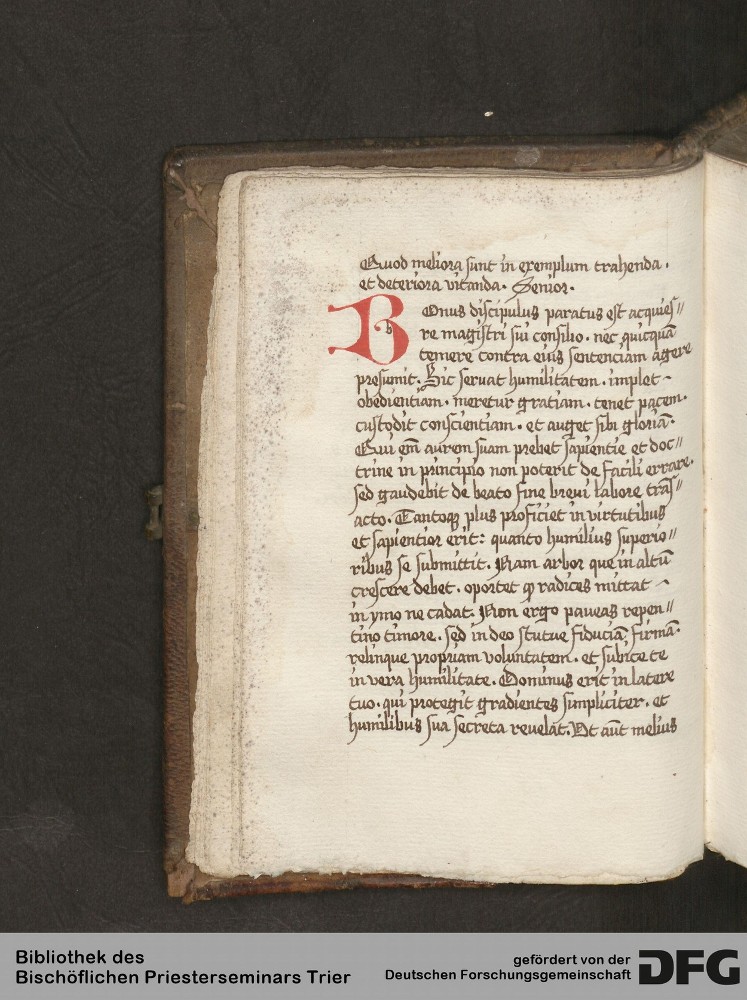 Quod meliora sunt in exemplum trahenda .
et deteriora vitanda . Senior .
BOnus discipulus paratus est acquies//
re magistri sui consilio . nec quicquā
temere contra eius sentenciam agere
presumit . Sic seruat humilitatem . implet -
obedientiam . meretur gratiam . tenet pacem .
custodit conscientiam . et auget sibi gloriā .
Qui em̄ aurem suam prebet sapientie et doc//
trine in principio non poterit de facili errare .
sed gaudebit de beato fine breui labore trās//
acto . Tantoqꝫ plus proficiet in virtutibus
et sapientior erit : quanto humilius superio//
ribus se submittit . Nam arbor que in altū
crescere debet . oportet ꝙ radices mittat -
in ymo ne cadat . Non ergo paueas repen//
tino timore . sed in deo statue fiduciā firmā .
relinque propriam voluntatem . et subice te
in vera humilitate . Dominus erit in latere
tuo . qui protegit gradientes simpliciter . et
humilibus sua secreta reuelat . Vt aūt melius
Bibliothek des
Bischöflichen Priesterseminars Trier
gefördert von der
Deutschen Forschungsgemeinschaft
DFG